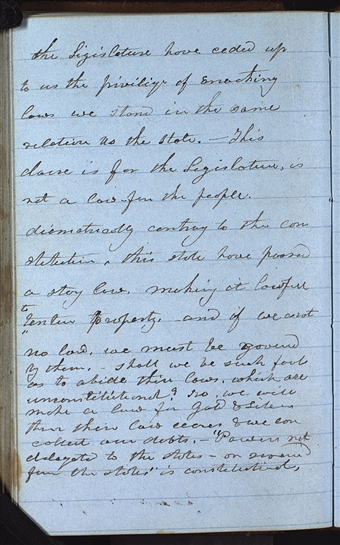 the Legislature have ceded up
to us the privilige of enacting
laws we stand in the same
relation as the state. — This
clause is for the Legislature, is
not a law for the people.
diametrically contray to the con
stitution, this state have passed
a stay law. making it lawfull
to tender Property. and if we enact
no law, we must be governd
by them. — shall we be such fools
as to abide thier laws, which are
unconstitutional? No, we will
make a law for Gold & Silver
then their law ceases & we can
collect our debts, — "Powers not
delegated to the states — or reserved
from the states" is constitutional,